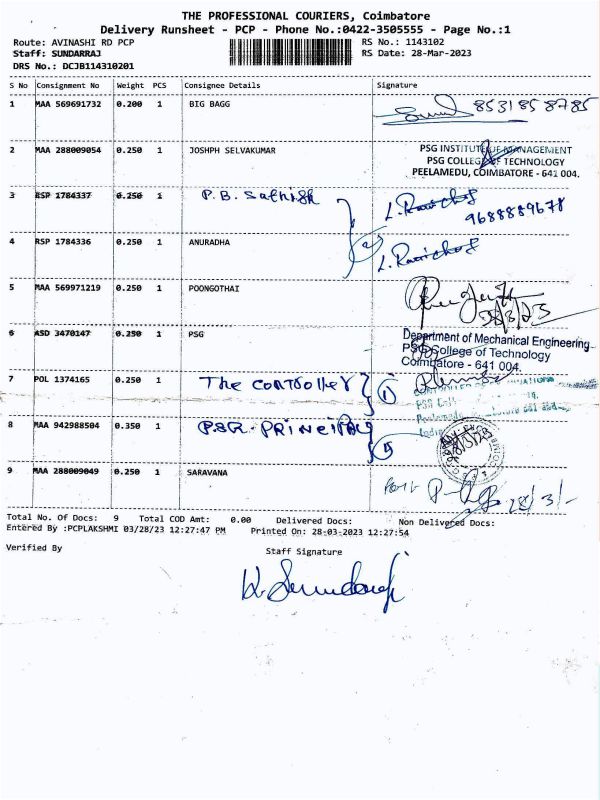 THE PROFESSIONAL COURIERS, Coimbatore
Delivery Runsheet - PCP - Phone No.:0422-3505555 - Page No.:1
Route: AVINASHI RD PCP
RS No.: 1143102
Staff: SUNDARRAJ
RS Date: 28-Mar-2023
DRS No.: DCJB114310201
S No Consignment No Weight PCS Consignee Details Signature
1 MAA 569691732 0.200 1 BIG BAGG 8531858785
2 MAA 288009054 0.250 1 JOSHPH SELVAKUMAR
PSG INSTITUTE OF MANAGEMENT
PSG COLLEGE OF TECHNOLOGY
PEELAMEDU, COIMBATORE - 641 004.
3 RSP 1784337 0.250 1 P.B. Sathish
9688889678
4 RSP 1784336 0.250 1 ANURADHA
5 MAA 569971219 0.250 1 POONGOTHAI
6 ASD 3470147 0.250 1 PSG
Department of Mechanical Engineering
PSG College of Technology
Coimbatore - 641 004.
7 POL 1374165 0.250 1 The controller
8 MAA 942988504 0.350 1 PSG. PRINCIPAL
9 MAA 288009049 0.250 1 SARAVANA
Total No. Of Docs: 9 Total COD Amt: 0.00 Delivered Docs: Non Delivered Docs:
Entered By :PCPLAKSHMI 03/28/23 12:27:47 PM Printed On: 28-03-2023 12:27:54
Verified By
Staff Signature